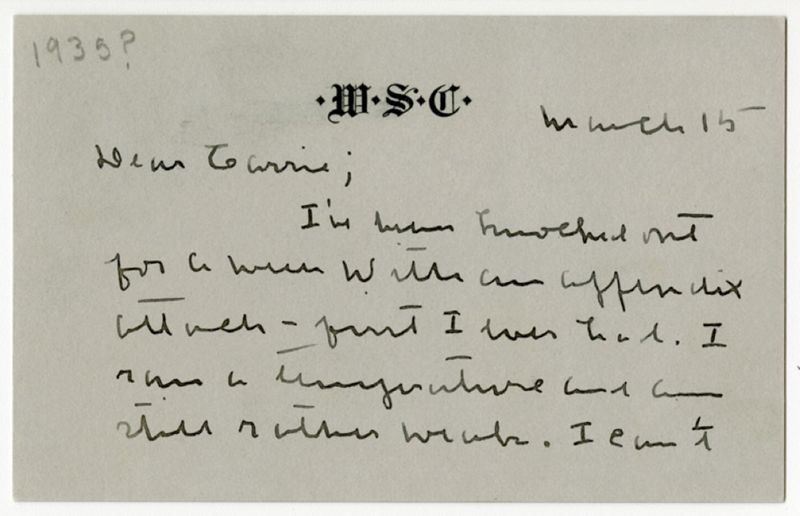 1935?
·W·S·C·
March 15
Dear Carrie;
I've been knocked out
for a week with an appendix
attack - first I ever had. I
ran a temperature and am
still rather weak. I can't